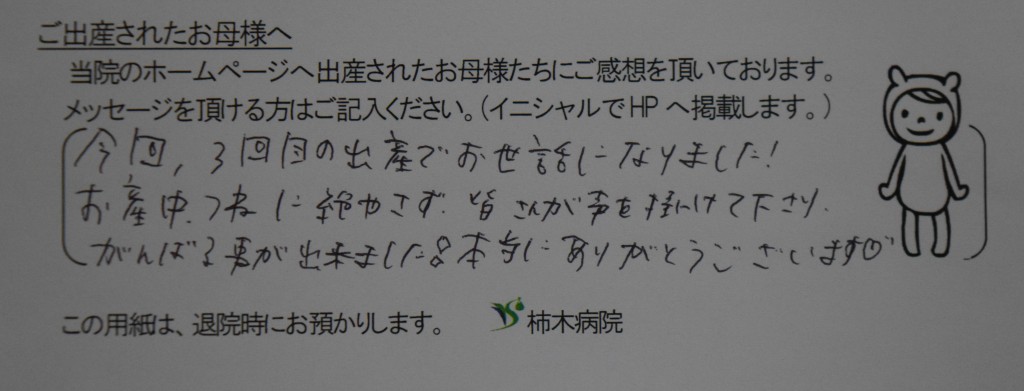 ご出産されたお母様へ
当院のホームページへ出産されたお母様たちにご感想を頂いております。
メッセージを頂ける方はご記入ください。(イニシャルでHPへ掲載します。)
今回,3回目の出産でお世話になりました!
お産中、つねに絶やさず、皆さんが声を掛けて下さり、
がんばる事が出来ました。本当にありがとうございます♡
この用紙は、退院時にお預かりします。
柿木病院